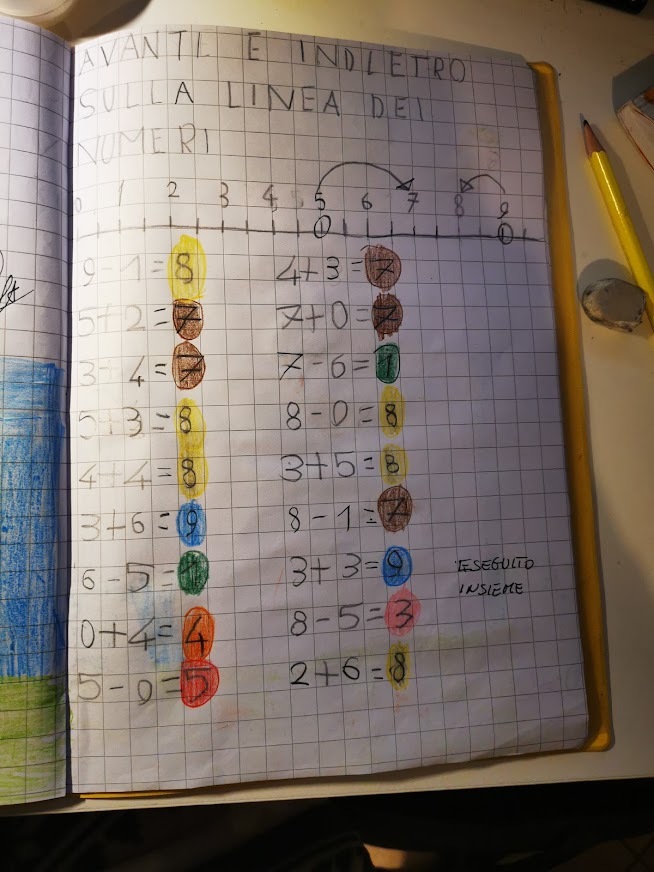 AVANTI E INDIETRO
SULLA LINEA DEI
NUMERI
0 1 2 3 4 5 6 7 8 9
9-1=8
5+2=7
3+4=7
5+3=8
4+4=8
3+6=9
6-5=1
0+4=4
5-0=5
4+3=7
7+0=7
7-6=1
8-0=8
3+5=8
8-1=7
3+3=9
8-5=3
2+6=8
ESEGUITO
INSIEME